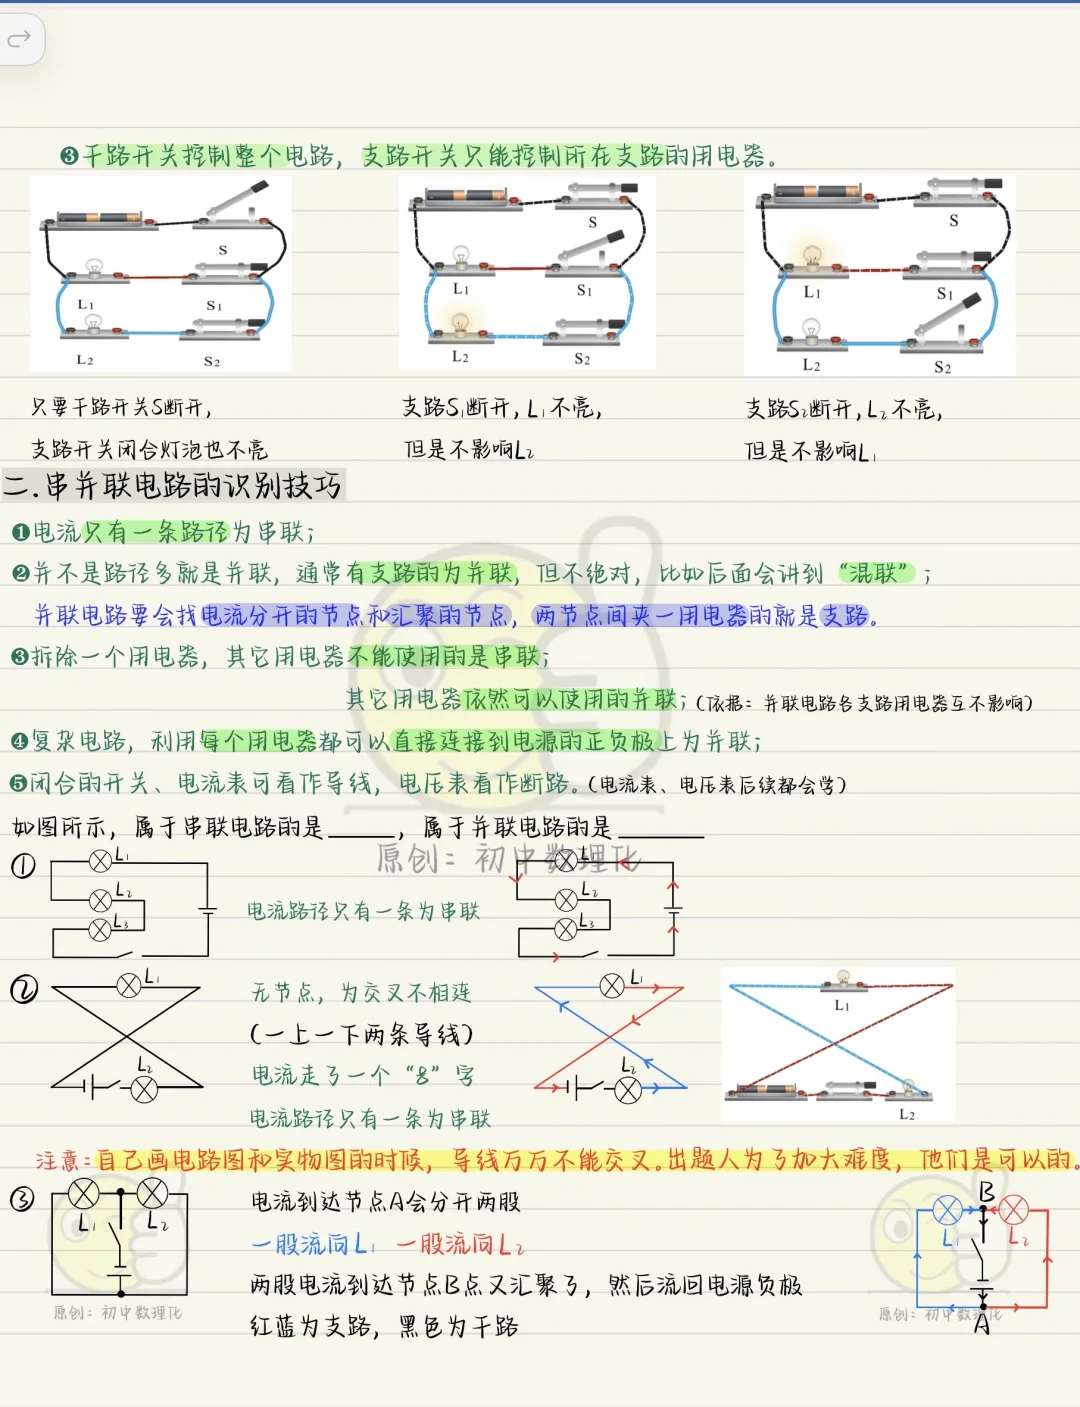 ❸干路开关控制整个电路，支路开关只能控制所在支路的用电器。
S
L1
S1
L2
S2
S
L1
S1
L2
S2
S
L1
S1
L2
S2
只要干路开关S断开，
支路开关闭合灯泡也不亮
支路S₁断开，L₁不亮，
但是不影响L₂
支路S₂断开，L₂不亮，
但是不影响L₁
二.串并联电路的识别技巧
❶电流只有一条路径为串联；
❷并不是路径多就是并联，通常有支路的为并联，但不绝对，比如后面会讲到“混联”；
并联电路要会找电流分开的节点和汇聚的节点，两节点间夹一用电器的就是支路。
❸拆除一个用电器，其它用电器不能使用的是串联；
其它用电器依然可以使用的并联；（依据：并联电路各支路用电器互不影响）
❹复杂电路，利用每个用电器都可以直接连接到电源的正负极上为并联；
❺闭合的开关、电流表可看作导线，电压表看作断路。（电流表、电压表后续都会学）
如图所示，属于串联电路的是_____，属于并联电路的是______
原创：初中数理化
①
L₁
L₂
L₃
电流路径只有一条为串联
L
L₂
L₃
②
L₁
L₂
无节点，为交叉不相连
（一上一下两条导线）
电流走了一个“8”字
电流路径只有一条为串联
L₁
L₂
L1
L2
注意：自己画电路图和实物图的时候，导线万万不能交叉。出题人为了加大难度，他们是可以的。
③
L₁
L₂
原创：初中数理化
电流到达节点A会分开两股
一股流向L₁ 一股流向L₂
两股电流到达节点B点又汇聚了，然后流回电源负极
红蓝为支路，黑色为干路
B
L₁
L₂
原创：初中数理化
A